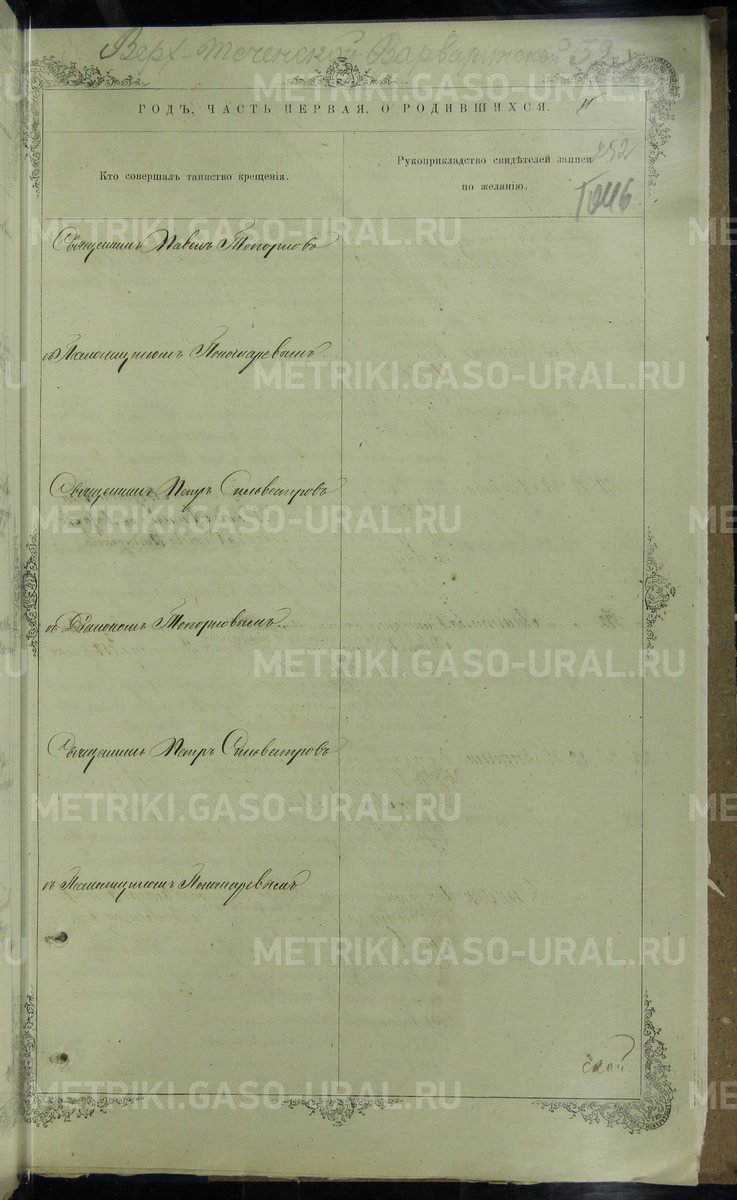 Верх-Теченской Варваринской 52
ГОДЪ, ЧАСТЬ ПЕРВАЯ, О РОДИВШИХСЯ.
252
Кто совершалъ таинство крещенія.
Рукоприкладство свидѣтелей записи
по желанію.
Священникъ Павелъ Топорковъ
съ Псаломщикомъ Пономаревымъ.
Священникъ Петръ Сильвестровъ
съ Діакономъ Топорковымъ.
Священникъ Петръ Сильвестровъ
съ Псаломщикомъ Пономаревымъ
METRIKI.GASO-URAL.RU